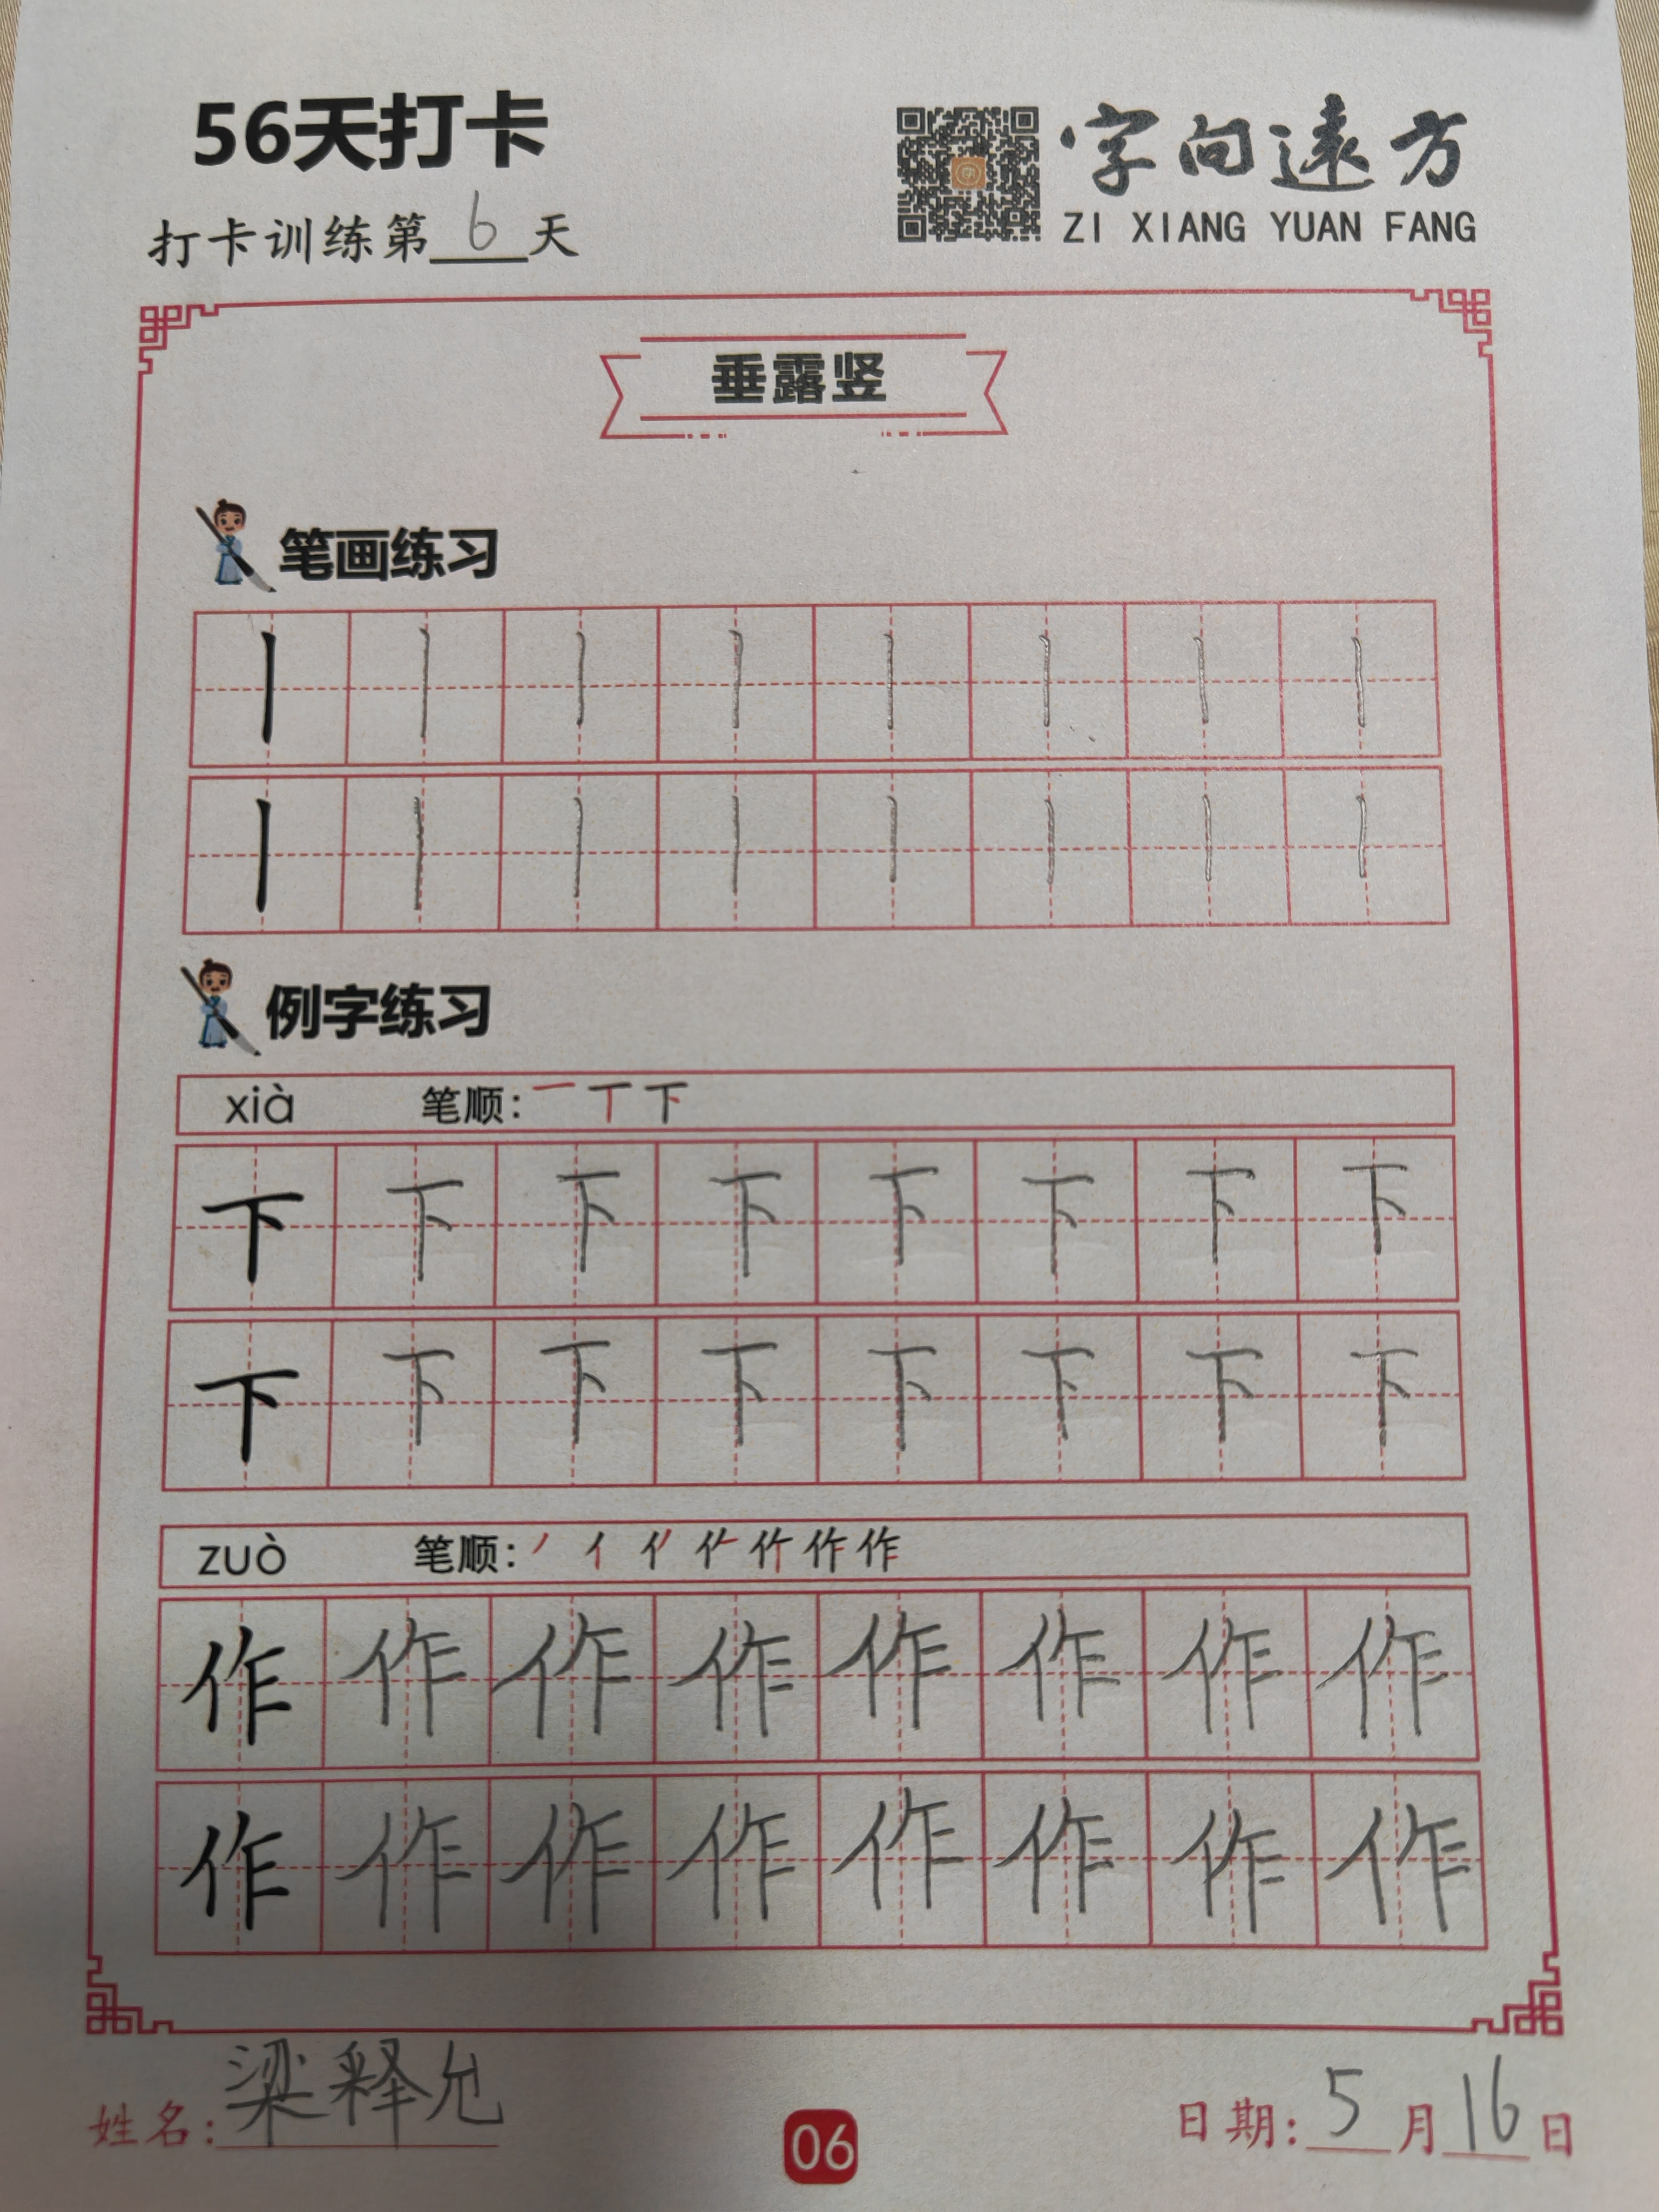 56天打卡
打卡训练第6天
字向遠方
ZI XIANG YUAN FANG
垂露竖
笔画练习
丨丨丨丨丨丨丨丨
丨丨丨丨丨丨丨丨
例字练习
xià 笔顺：一 丅 下
下下下下下下下下
下下下下下下下下
zuò 笔顺：丿 亻 作
作作作作作作作作
作作作作作作作作
姓名：梁释允
06
日期：5月16日